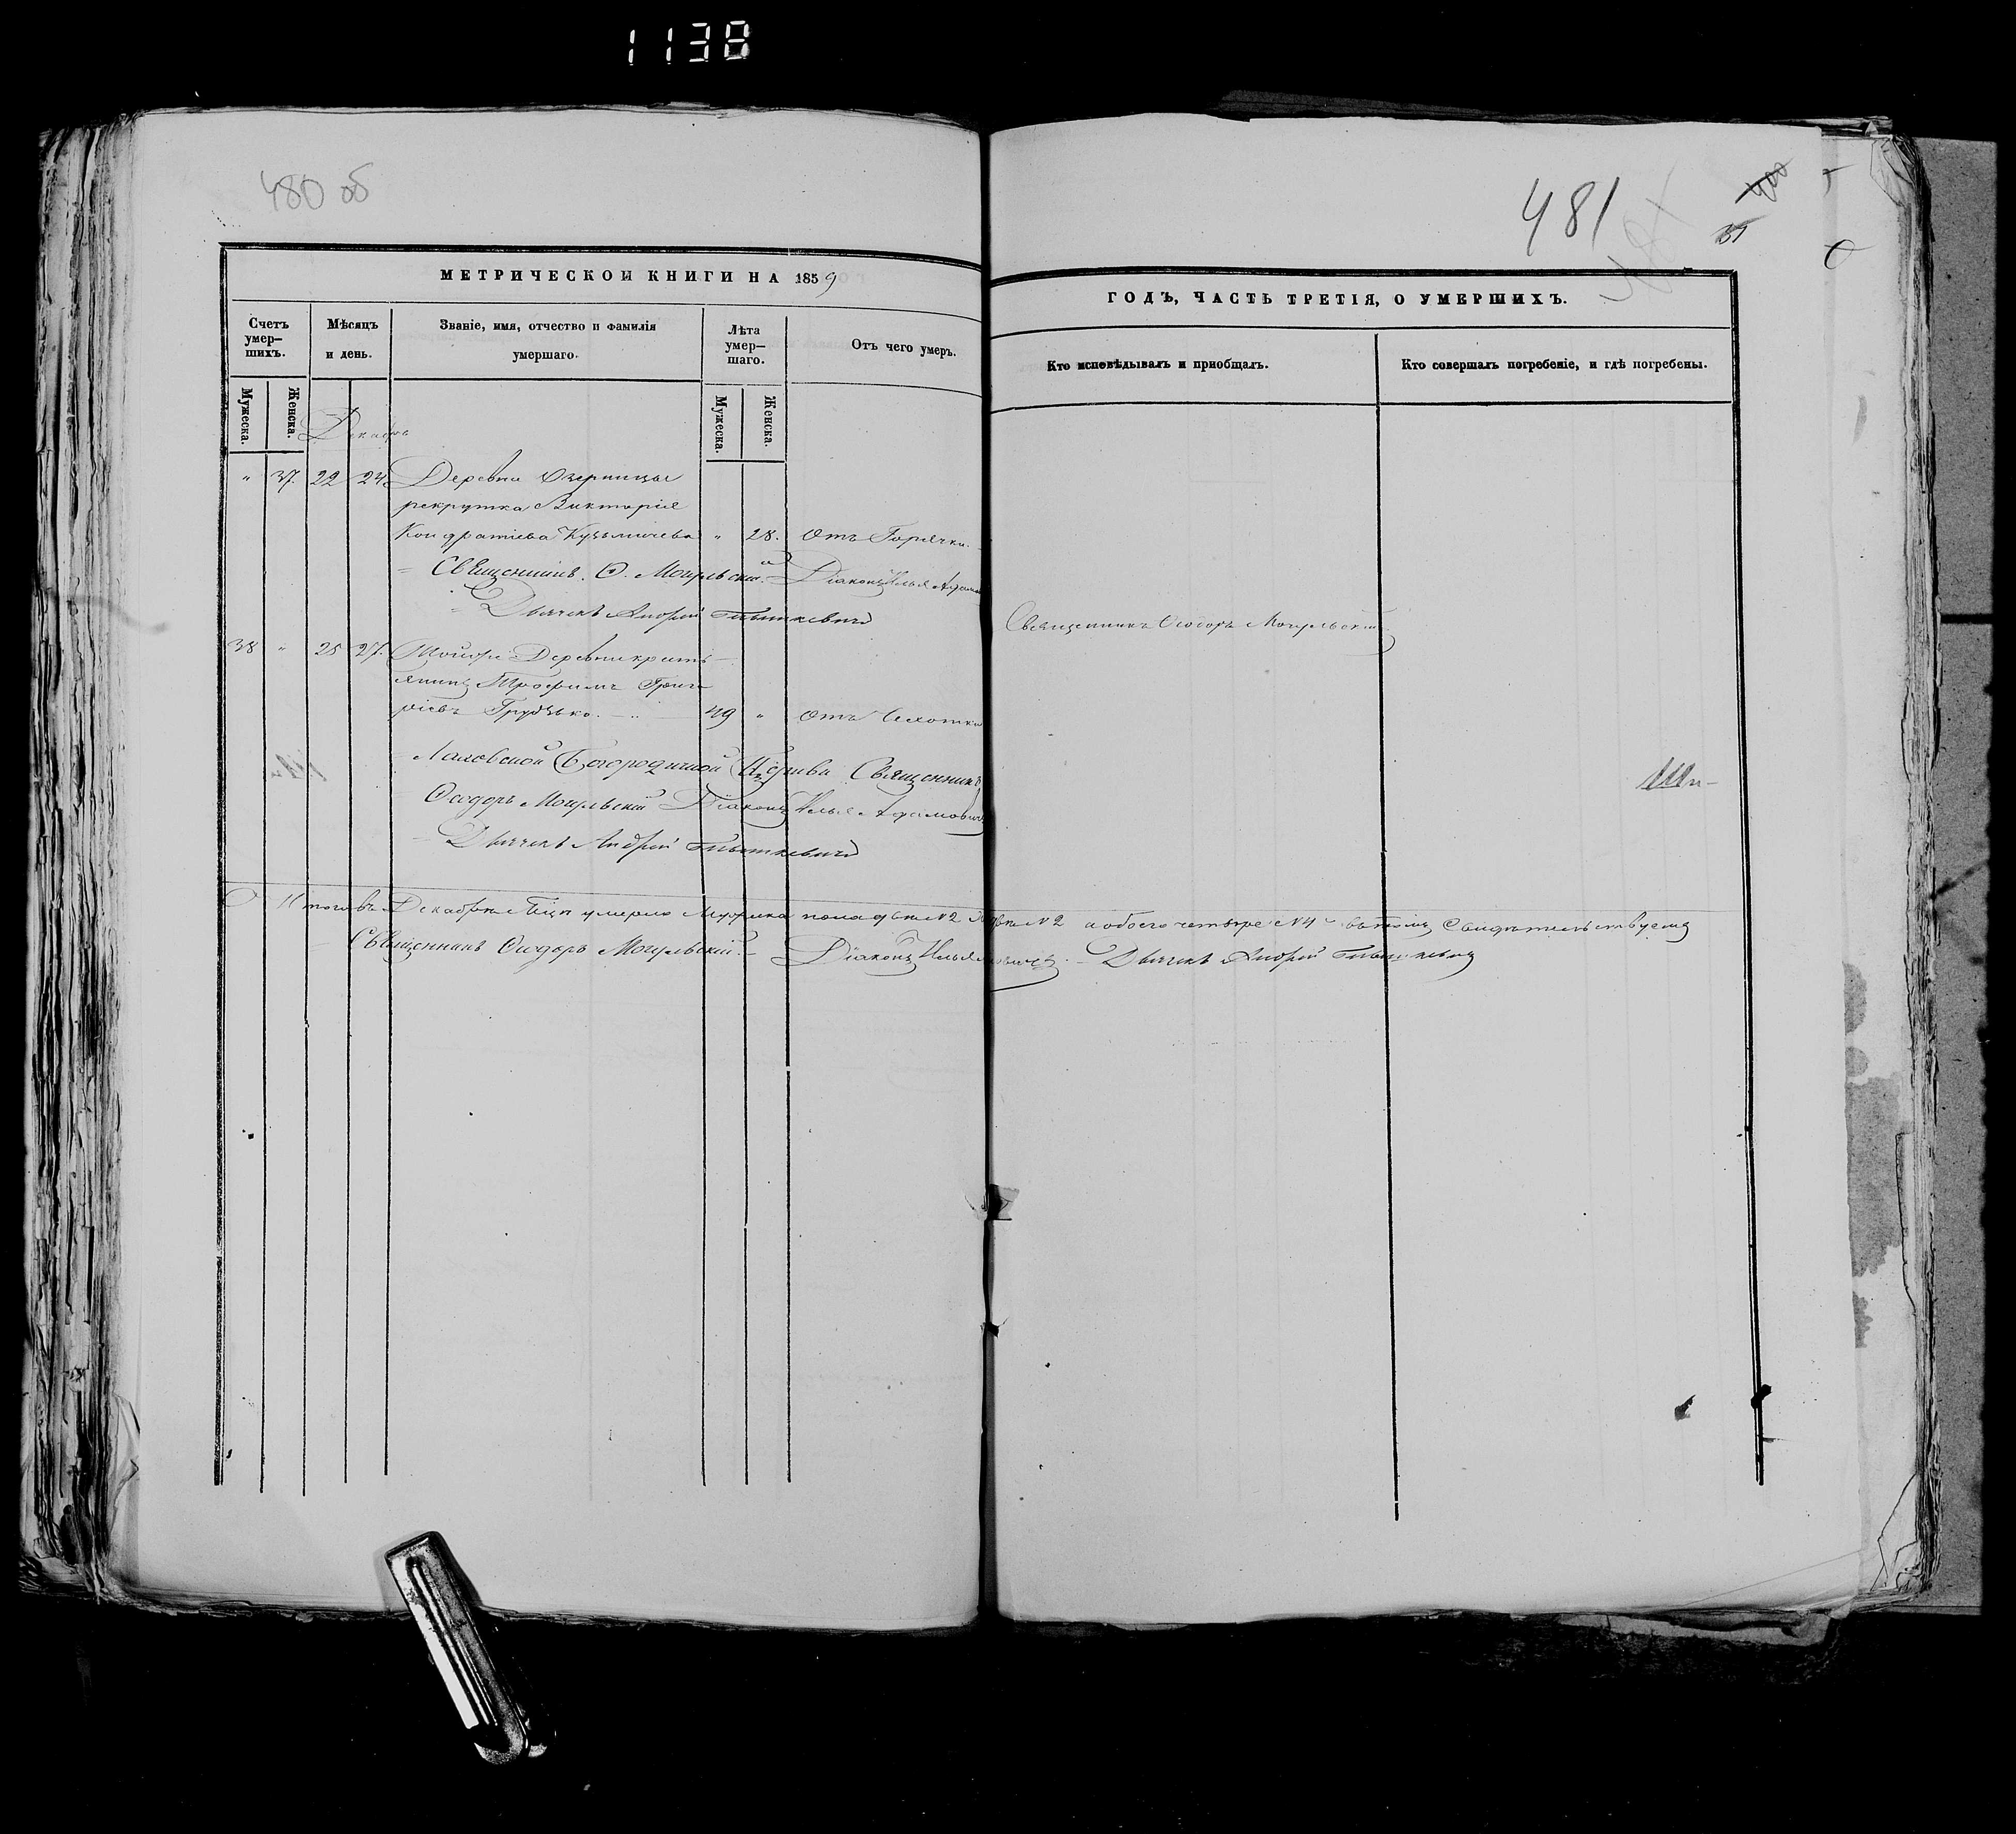 1138
480 об
481
МЕТРИЧЕСКОЙ КНИГИ НА 1859
ГОДЪ, ЧАСТЬ ТРЕТІЯ, О УМЕРШИХЪ.
Счетъ умер-
шихъ.
Мѣсяцъ
и день.
Званіе, имя, отчество и фамилія
умершаго.
Лѣта
умер-
шаго.
Отъ чего умеръ.
Кто исповѣдывалъ и пріобщалъ.
Кто совершалъ погребеніе, и гдѣ погребены.
Мужеска.
Женска.
Мужеска.
Женска.
Декабрь
" 37. 22 24. Деревни Озерницы
рекрутка Викторія
Кондратіева Кузьмичева " 28. Отъ Горячки.
Священникъ Ѳ. Могильскій Діаконъ Илья
Дьячекъ Андрей
Священникъ Ѳеодоръ Могильскій
38 " 25 27. Тойже Деревни кресть-
янинъ Трофимъ Григо
ріевъ 49 " Отъ Чахотки
Богородичной Церкви Священникъ
Ѳеодоръ Могильскій Діаконъ Илья Адамовичъ
Дьячекъ Андрей
Итого въ Декабрѣ умерло Мужеска пола два №2 №2 а обоего четыре №4 въ томъ Свидѣтельствуемъ
Священникъ Ѳеодоръ Могильскій Діаконъ Илья Дьячекъ Андрей